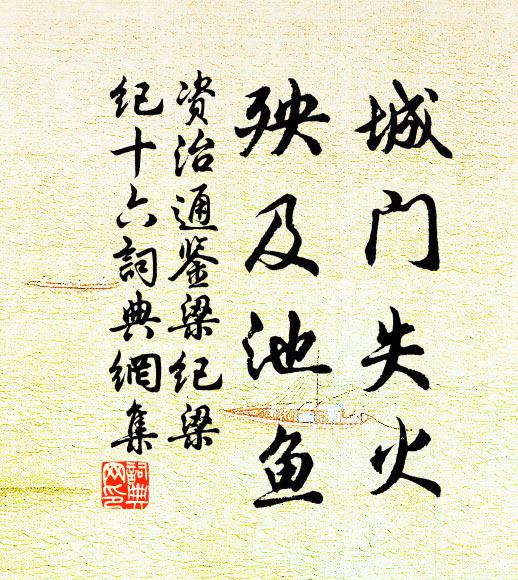 城门失火
殃及池鱼
资治通鉴梁纪梁
纪十六詞典網集
詞典
网印